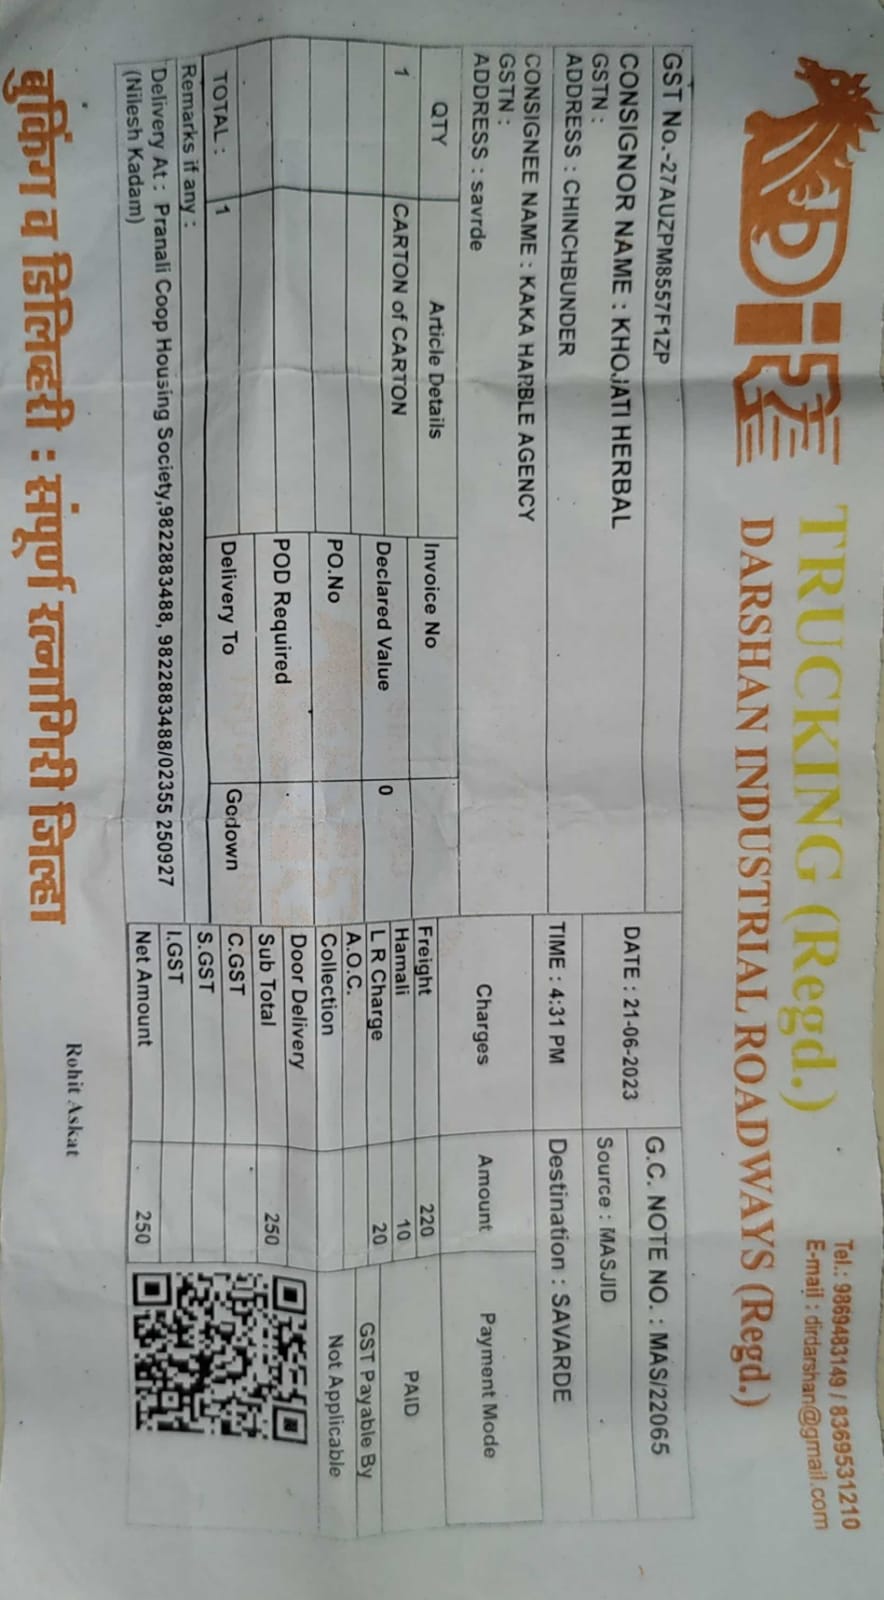 DiR
TRUCKING (Regd.)
Tel.: 9869483149 / 8369531210
E-mail : dirdarshan@gmail.com
DARSHAN INDUSTRIAL ROADWAYS (Regd.)
GST No.-27AUZPM8557F1ZP
CONSIGNOR NAME : KHOJATI HERBAL
GSTN :
ADDRESS : CHINCHBUNDER
DATE : 21-06-2023
G.C. NOTE NO. : MAS/22065
Source : MASJID
CONSIGNEE NAME : KAKA HARBLE AGENCY
GSTN :
ADDRESS : savrde
TIME : 4:31 PM
Destination : SAVARDE
QTY Article Details Invoice No Charges Amount Payment Mode
1 CARTON of CARTON Declared Value 0
PO.No
POD Required
TOTAL : 1 Delivery To Godown
Freight 220
Hamali 10 PAID
L R Charge 20
A.O.C. GST Payable By
Collection Not Applicable
Door Delivery
Sub Total 250
C.GST
S.GST
I.GST
Net Amount 250
Remarks if any :
Delivery At : Pranali Coop Housing Society,9822883488, 9822883488/02355 250927
(Nilesh Kadam)
बुकिंग व डिलिव्हरी : संपूर्ण रत्नागिरी जिल्हा
Rohit Askat